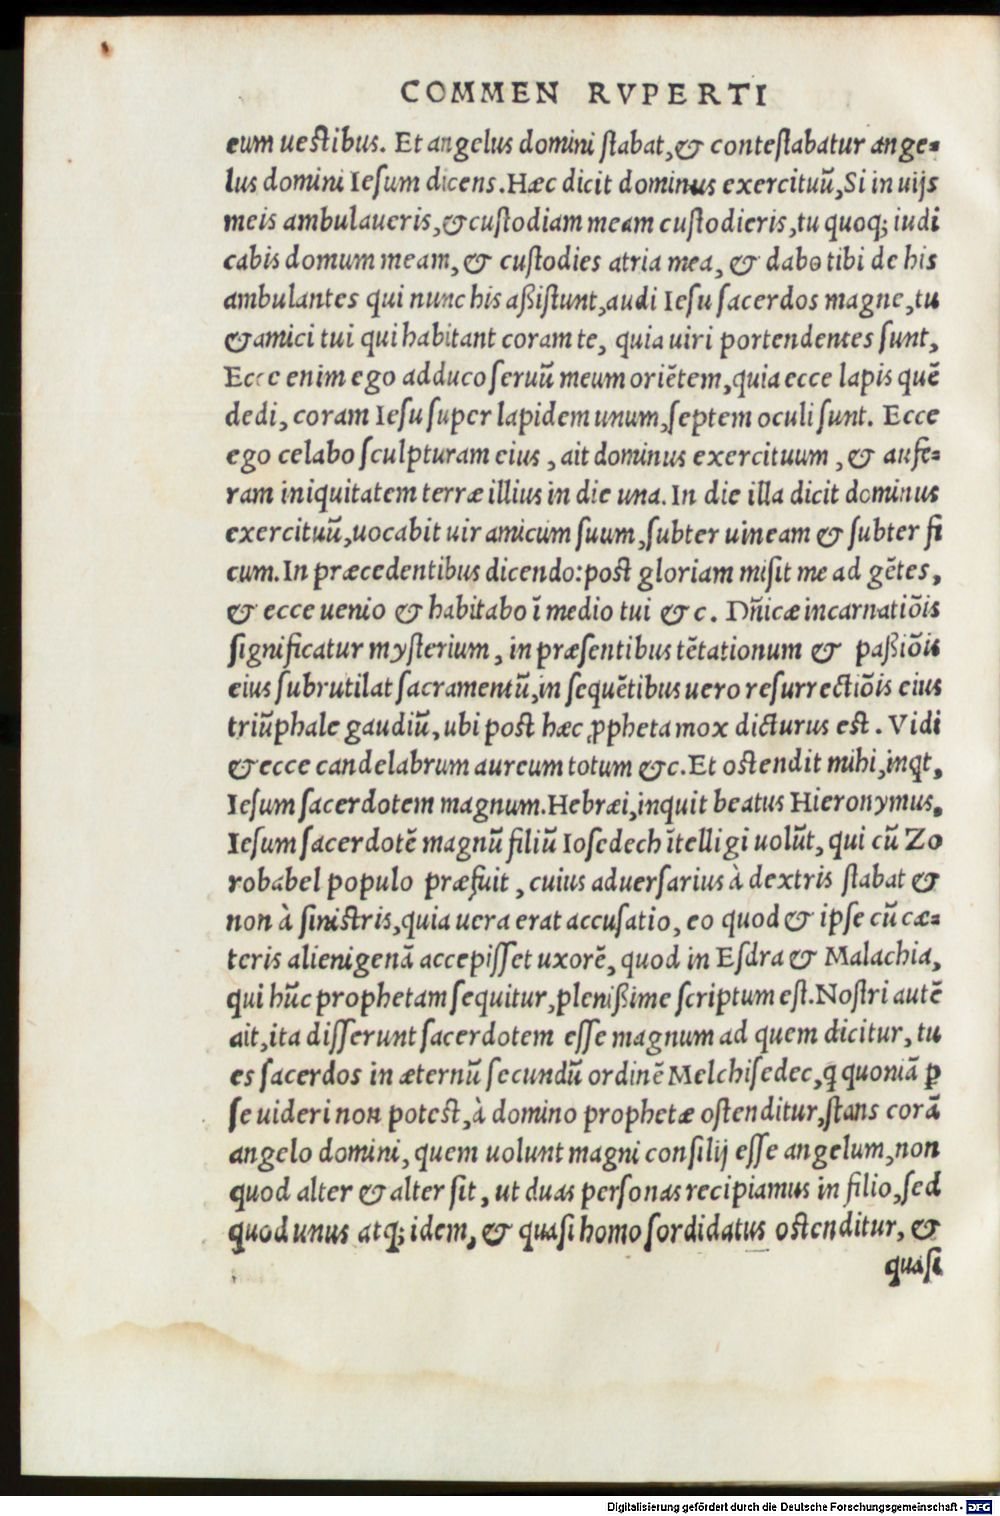 COMMEN RVPERTI
eum uestibus. Et angelus domini stabat, & contestabatur ange=
lus domini Iesum dicens. Hæc dicit dominus exercituū, Si in uijs
meis ambulaueris, & custodiam meam custodieris, tu quoq; iudi
cabis domum meam, & custodies atria mea, & dabo tibi de his
ambulantes qui nunc his aßistunt, audi Iesu sacerdos magne, tu
& amici tui qui habitant coram te, quia uiri portendentes sunt,
Ecce enim ego adduco seruū meum oriētem, quia ecce lapis quē
dedi, coram Iesu super lapidem unum, septem oculi sunt. Ecce
ego celabo sculpturam eius, ait dominus exercituum, & aufe=
ram iniquitatem terræ illius in die una. In die illa dicit dominus
exercituū, uocabit uir amicum suum, subter uineam & subter fi
cum. In præcedentibus dicendo: post gloriam misit me ad gētes,
& ecce uenio & habitabo ī medio tui & c. Dñicæ incarnatiōis
significatur mysterium, in præsentibus tētationum & paßiōis
eius subrutilat sacramentū, in sequētibus uero resurrectiōis eius
triūphale gaudiū, ubi post hæc ꝓpheta mox dicturus est. Vidi
& ecce candelabrum aureum totum & c. Et ostendit mihi, inqt,
Iesum sacerdotem magnum. Hebræi, inquit beatus Hieronymus,
Iesum sacerdotē magnū filiū Iosedech ītelligi uolūt, qui cū Zo
robabel populo præfuit, cuius aduersarius à dextris stabat &
non à sinistris, quia uera erat accusatio, eo quod & ipse cū cæ=
teris alienigenā accepisset uxorē, quod in Esdra & Malachia,
qui hūc prophetam sequitur, plenißime scriptum est. Nostri autē
ait, ita disserunt sacerdotem esse magnum ad quem dicitur, tu
es sacerdos in æternū secundū ordinē Melchisedec, q quoniā ꝑ
se uideri non potest, à domino prophetæ ostenditur, stans corā
angelo domini, quem uolunt magni consilij esse angelum, non
quod alter & alter sit, ut duas personas recipiamus in filio, sed
quod unus atq; idem, & quasi homo sordidatus ostenditur, &
quasi
Digitalisierung gefördert durch die Deutsche Forschungsgemeinschaft - DFG